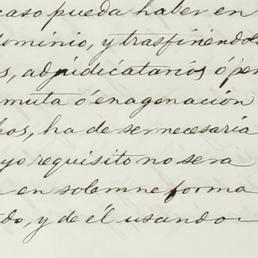 caso pueda haber en
dominio, y trasfiriéndol
s, adjudicatarios ó per
muta ó enagenación
hos, ha de ser necesaria
yo requisito no sera
en solemne forma
do, y de él usando